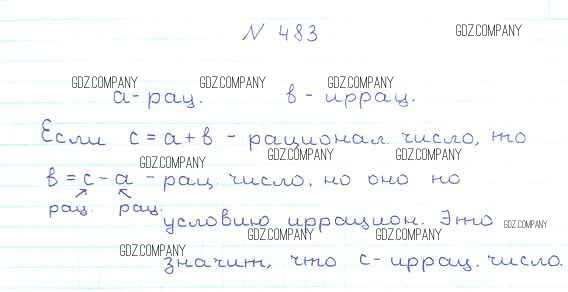 N 483
GDZ.COMPANY
GDZ.COMPANY GDZ.COMPANY GDZ.COMPANY
а - рац. в - иррац.
Если с = а + в - рационал. число, то
GDZ.COMPANY GDZ.COMPANY GDZ.COMPANY
в = с - а - рац. число, но оно по
рац. рац.
условию иррацион. Это
GDZ.COMPANY GDZ.COMPANY GDZ.COMPANY
GDZ.COMPANY
значит, что с - иррац. число.